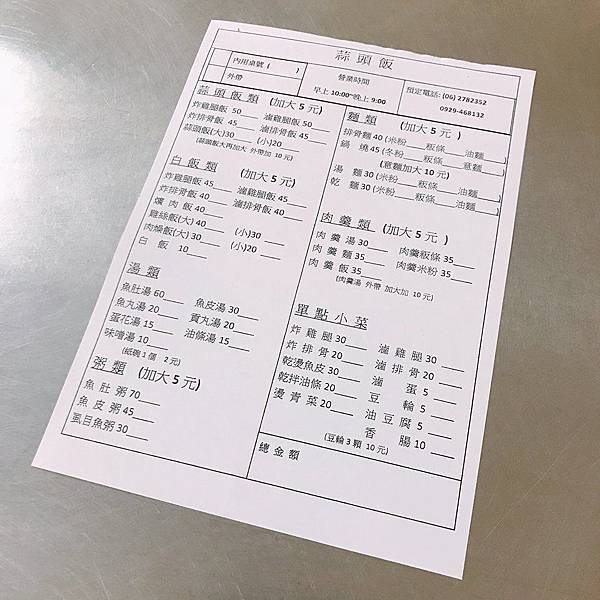 蒜頭飯
內用桌號 (　　　)
外帶
營業時間
早上 10:00~晚上 9:00
預定電話: (06) 2782352
0929-468132
蒜頭飯類　(加大 5 元)
炸雞腿飯 50____　滷雞腿飯 50____
炸排骨飯 45____　滷排骨飯 45____
蒜頭飯(大)30____　(小)20____
(蒜頭飯大再加大 外帶加 10 元)
白飯類　(加大 5 元)
炸雞腿飯 45____　滷雞腿飯 45____
炸排骨飯 40____　滷排骨飯 40____
爌 肉 飯 40____
雞絲飯(大) 40____　(小)30____
肉燥飯(大) 30____　(小)20____
白　飯　10____
湯類
魚肚湯 60____　魚皮湯 30____
魚丸湯 20____　貢丸湯 20____
蛋花湯 15____　油條湯 15____
味噌湯 10____
(紙碗 1 個　2 元)
粥類　(加大 5 元)
魚 肚 粥 70____
魚 皮 粥 45____
虱目魚粥 30____
麵類　(加大 5 元 )
排骨麵 40 (米粉____粄條____油麵____)
鍋　燒 45 (冬粉____粄條____意麵____)
(意麵加大 10 元)
湯　麵 30 (米粉____粄條____油麵____)
乾　麵 30 (米粉____粄條____油麵____)
肉羹類　(加大 5 元 )
肉 羹 湯 30____　肉羹粄條 35____
肉 羹 麵 35____　肉羹米粉 35____
肉 羹 飯 35____
(肉羹湯 外帶 加大加 10 元)
單點小菜
炸 雞 腿 30____　滷 雞 腿 30____
炸 排 骨 20____　滷 排 骨 20____
乾燙魚皮 30____　滷　　蛋 5____
乾拌油條 20____　豆　　輪 5____
燙 青 菜 20____　油 豆 腐 5____
香　　腸 10____
(豆輪 3 顆 10 元)
總金額